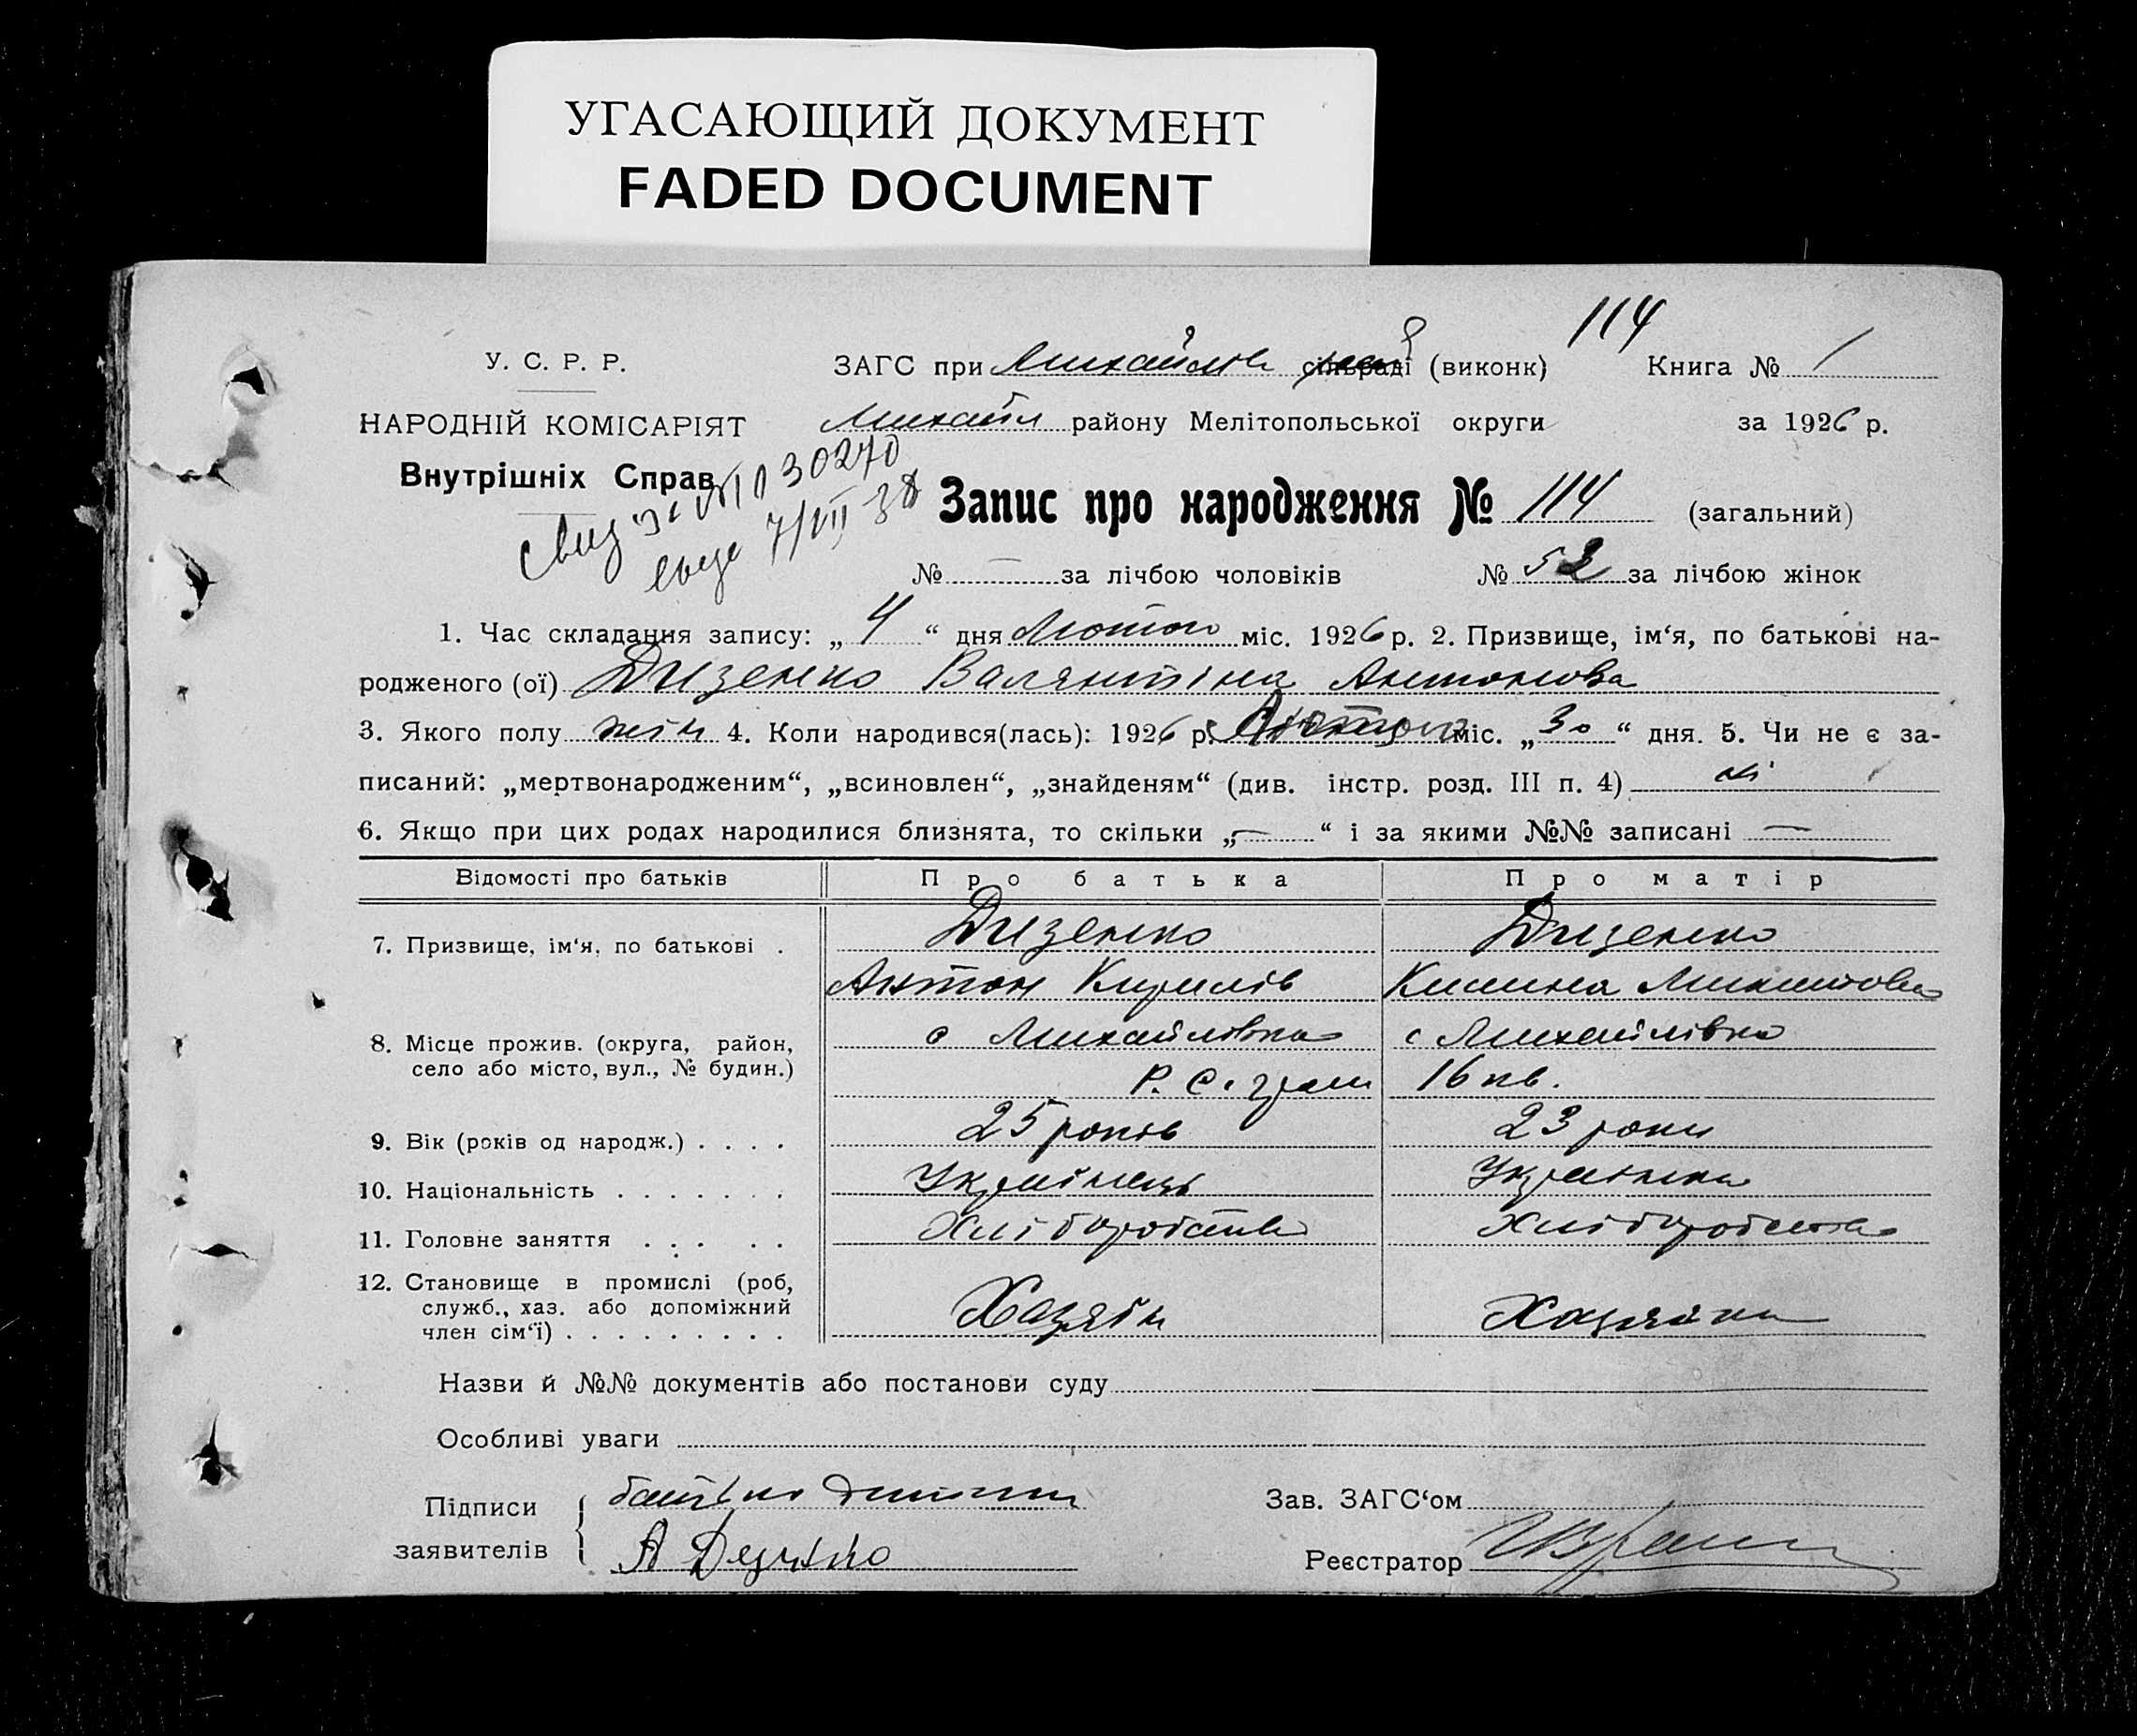 УГАСАЮЩИЙ ДОКУМЕНТ
FADED DOCUMENT
114
У. С. Р. Р. ЗАГС при Михайлів співраді (виконк) Книга № 1
НАРОДНІЙ КОМІСАРІЯТ Михайл району Мелітопольської округи за 1926 р.
Внутрішніх Справ
030270
7/VII 38
Запис про народження № 114 (загальний)
№ — за лічбою чоловіків № 52 за лічбою жінок
1. Час складання запису: „ 4 “ дня Лютого міс. 1926 р. 2. Призвище, ім‘я, по батькові на-
родженого (ої) Дизенко Валянтіна Антонова
3. Якого полу жін 4. Коли народився(лась): 1926 р. міс. „ 30 “ дня. 5. Чи не є за-
писаний: „мертвонародженим“, „всиновлен“, „знайденям“ (див. інстр. розд. III п. 4) ні
6. Якщо при цих родах народилися близнята, то скільки „ — “ і за якими №№ записані —
Відомості про батьків Про батька Про матір
7. Призвище, ім‘я, по батькові . Дизенко Дизенко
Антон Кирилів Микитова
8. Місце прожив. (округа, район, село або місто, вул., № будин.) с Михайлівка с Михайлівка
Р. С. 16 кв.
9. Вік (років од народж.) . . . . 25 років 23 роки
10. Національність . . . . . . . Українець Українка
11. Головне заняття . . . . . Хліборобство Хліборобство
12. Становище в промислі (роб, служб., хаз. або допоміжний член сім‘ї) . . . . . . . . . Хазяїн Хазяйка
Назви й №№ документів або постанови суду
Особливі уваги
Підписи заявителів батько дитини Зав. ЗАГС‘ом
А Реєстратор